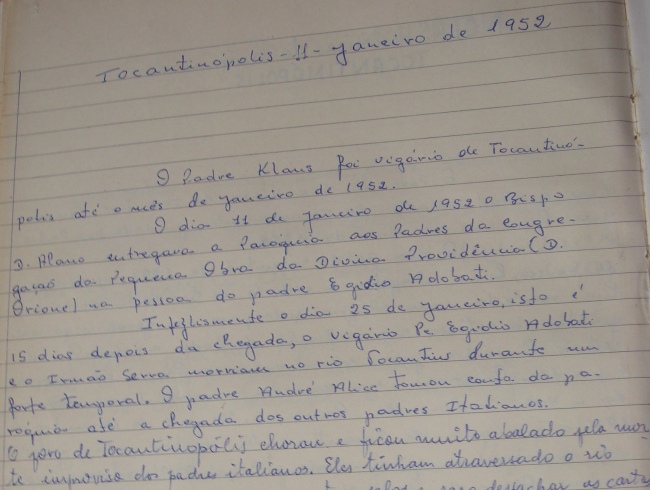 Tocantinópolis - 11 - Janeiro de 1952
O Padre Klaus foi vigário de Tocantinó-
polis até o mês de janeiro de 1952.
O dia 11 de janeiro de 1952 o Bispo
D. Alano entregava a Paróquia aos Padres da congre-
gação da Pequena Obra da Divina Providência (D.
Orione) na pessoa do padre Egidio Adobati.
Infezlismente o dia 25 de janeiro, isto é
15 dias depois da chegada, o vigário Pe. Egidio Adobati
e o Irmão Serra morriam no rio Tocantins durante um
forte temporal. O padre André Alice tomou conta da pa-
roquia até a chegada dos outros padres Italianos.
O povo de Tocantinopólis chorou e ficou muito abalado pela mor
te improvisa dos padres italianos. Eles tinham atravessado o rio
despachar as cartas